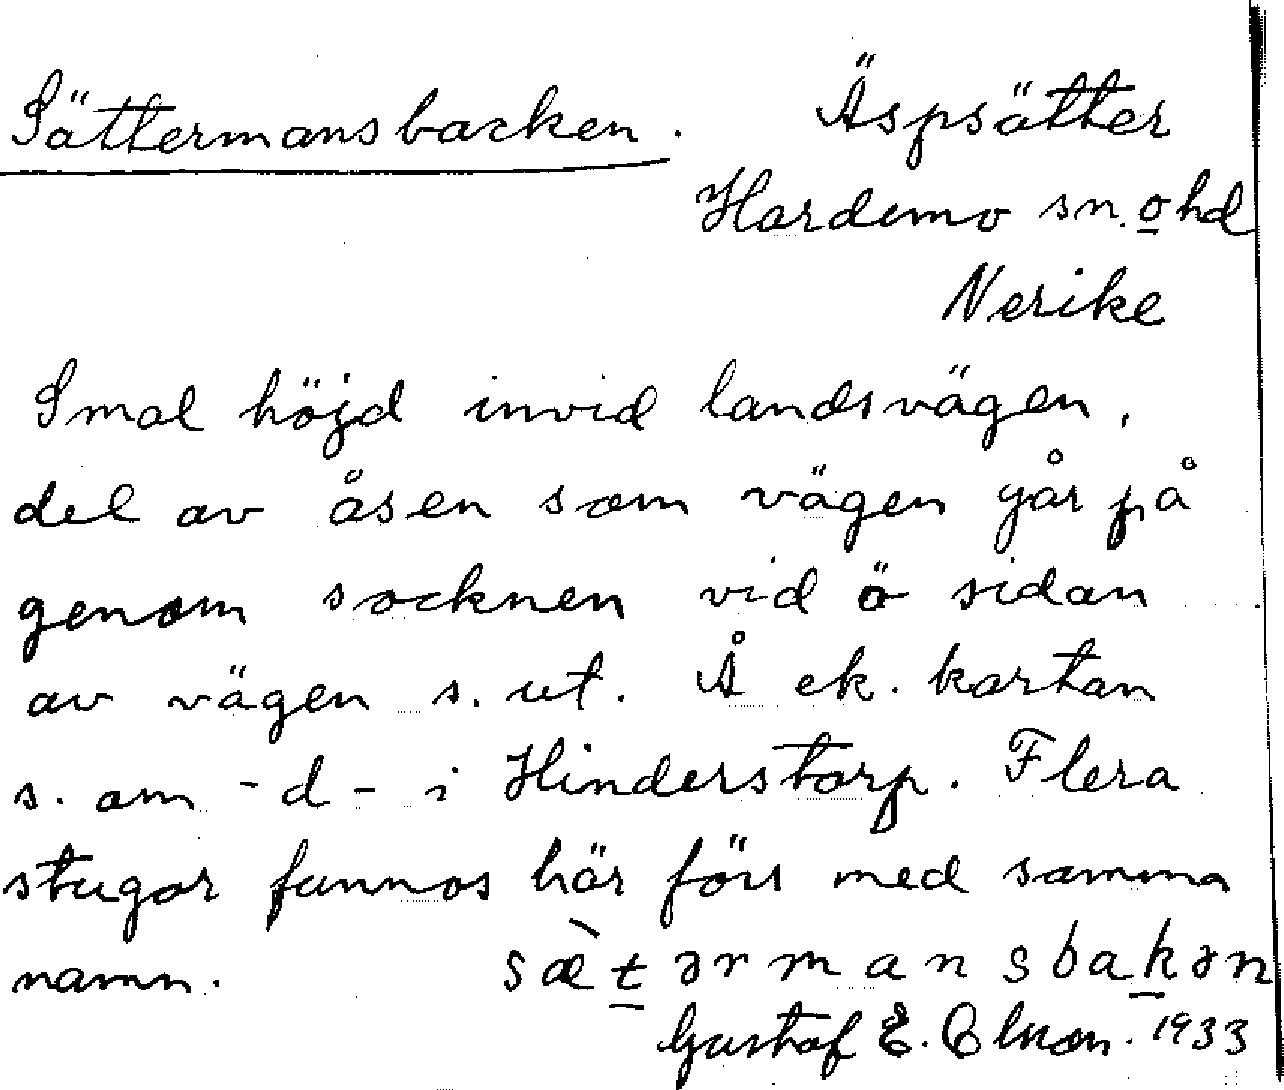 Sättermansbacken. Äspsätter
Hardemo sn. o hd
Nerike
Smal höjd invid landsvägen,
del av åsen som vägen går på
genom socknen vid ö sidan
av vägen s. ut. Å ek. kartan
s. om - d - i Hinderstorp. Flera
stugor funnos här förs med samma
namn. sæ̀t̲ərmansbak̲ən
Gustaf E. Elnon. 1933